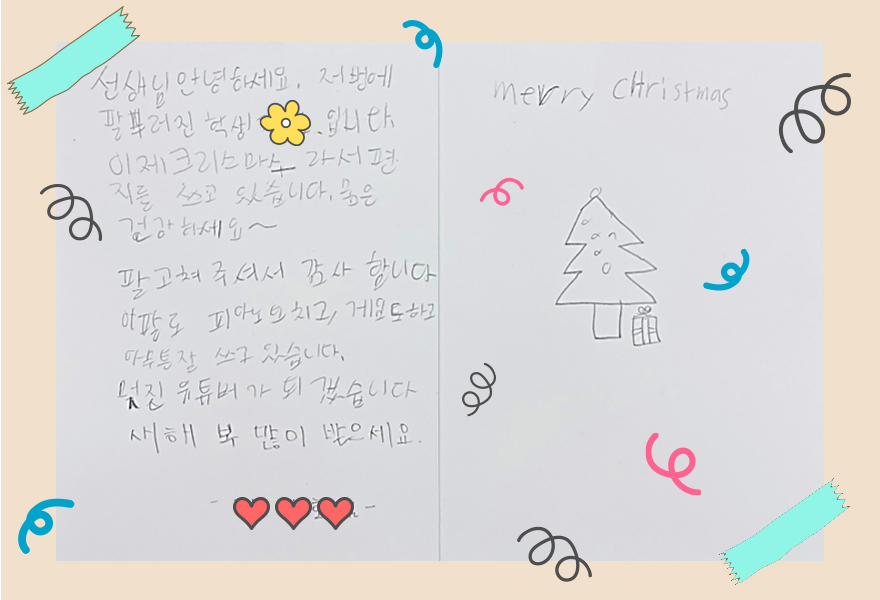 선생님 안녕하세요. 저번에
팔 뿌러진 학생 입니다
이제 크리스마스 라서 편
지를 쓰고 있습니다. 몸은
건강하세요~
팔 고쳐 주셔서 감사 합니다
이 팔로 피아노도 치고, 게임도하고
아무튼 잘 쓰고 있습니다.
멋진 유튜버가 되 겠습니다
새해 복 많이 받으세요.
merry christmas